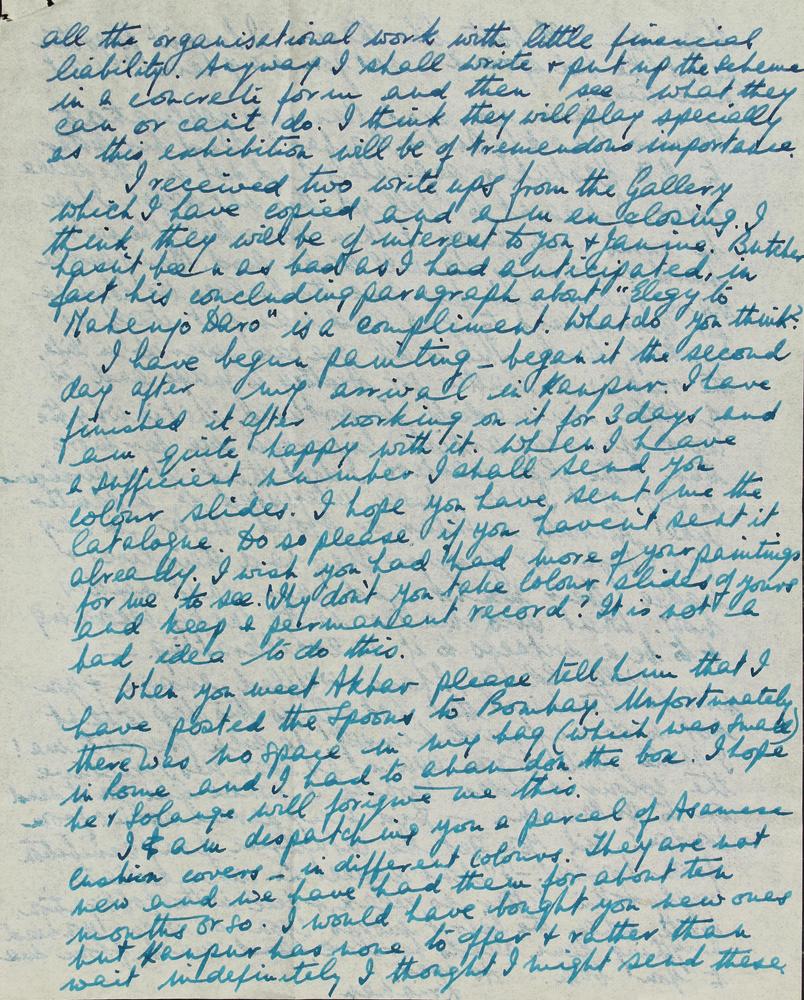 all the organisational work with little financial
liability. Anyway I shall write & put up the scheme
in a concrete form and then see what they
can or can't do. I think they will play specially
as this exhibition will be of tremendous importance.
I received two write ups from the Gallery
which I have copied and am enclosing. I
think they will be of interest to you & Janine. Butcher
hasn't been as bad as I had anticipated, in
fact his concluding paragraph about "Elegy to
Mahenjo Daro" is a compliment. What do you think?
I have begun painting – began it the second
day after my arrival in Kanpur. I have
finished it after working on it for 3 days and
am quite happy with it. When I have
a sufficient number I shall send you
colour slides. I hope you have sent me the
catalogue. Do so please if you haven't sent it
already. I wish you had had more of your paintings
for me to see. Why don't you take colour slides of yours
and keep a permanent record? It is not a
bad idea to do this.
When you meet Akbar please tell him that I
have posted the Spoons to Bombay. Unfortunately
there was no space in my bag (which was small)
in Rome and I had to abandon the box. I hope
he & Solange will forigve me this.
I am dispatching you a parcel of Asamese
cushion covers – in different colours. They are not
new and we have had them for about ten
months or so. I would have bought you new ones
but Kanpur has none to offer & rather than
wait indefinitely I thought I might send these.